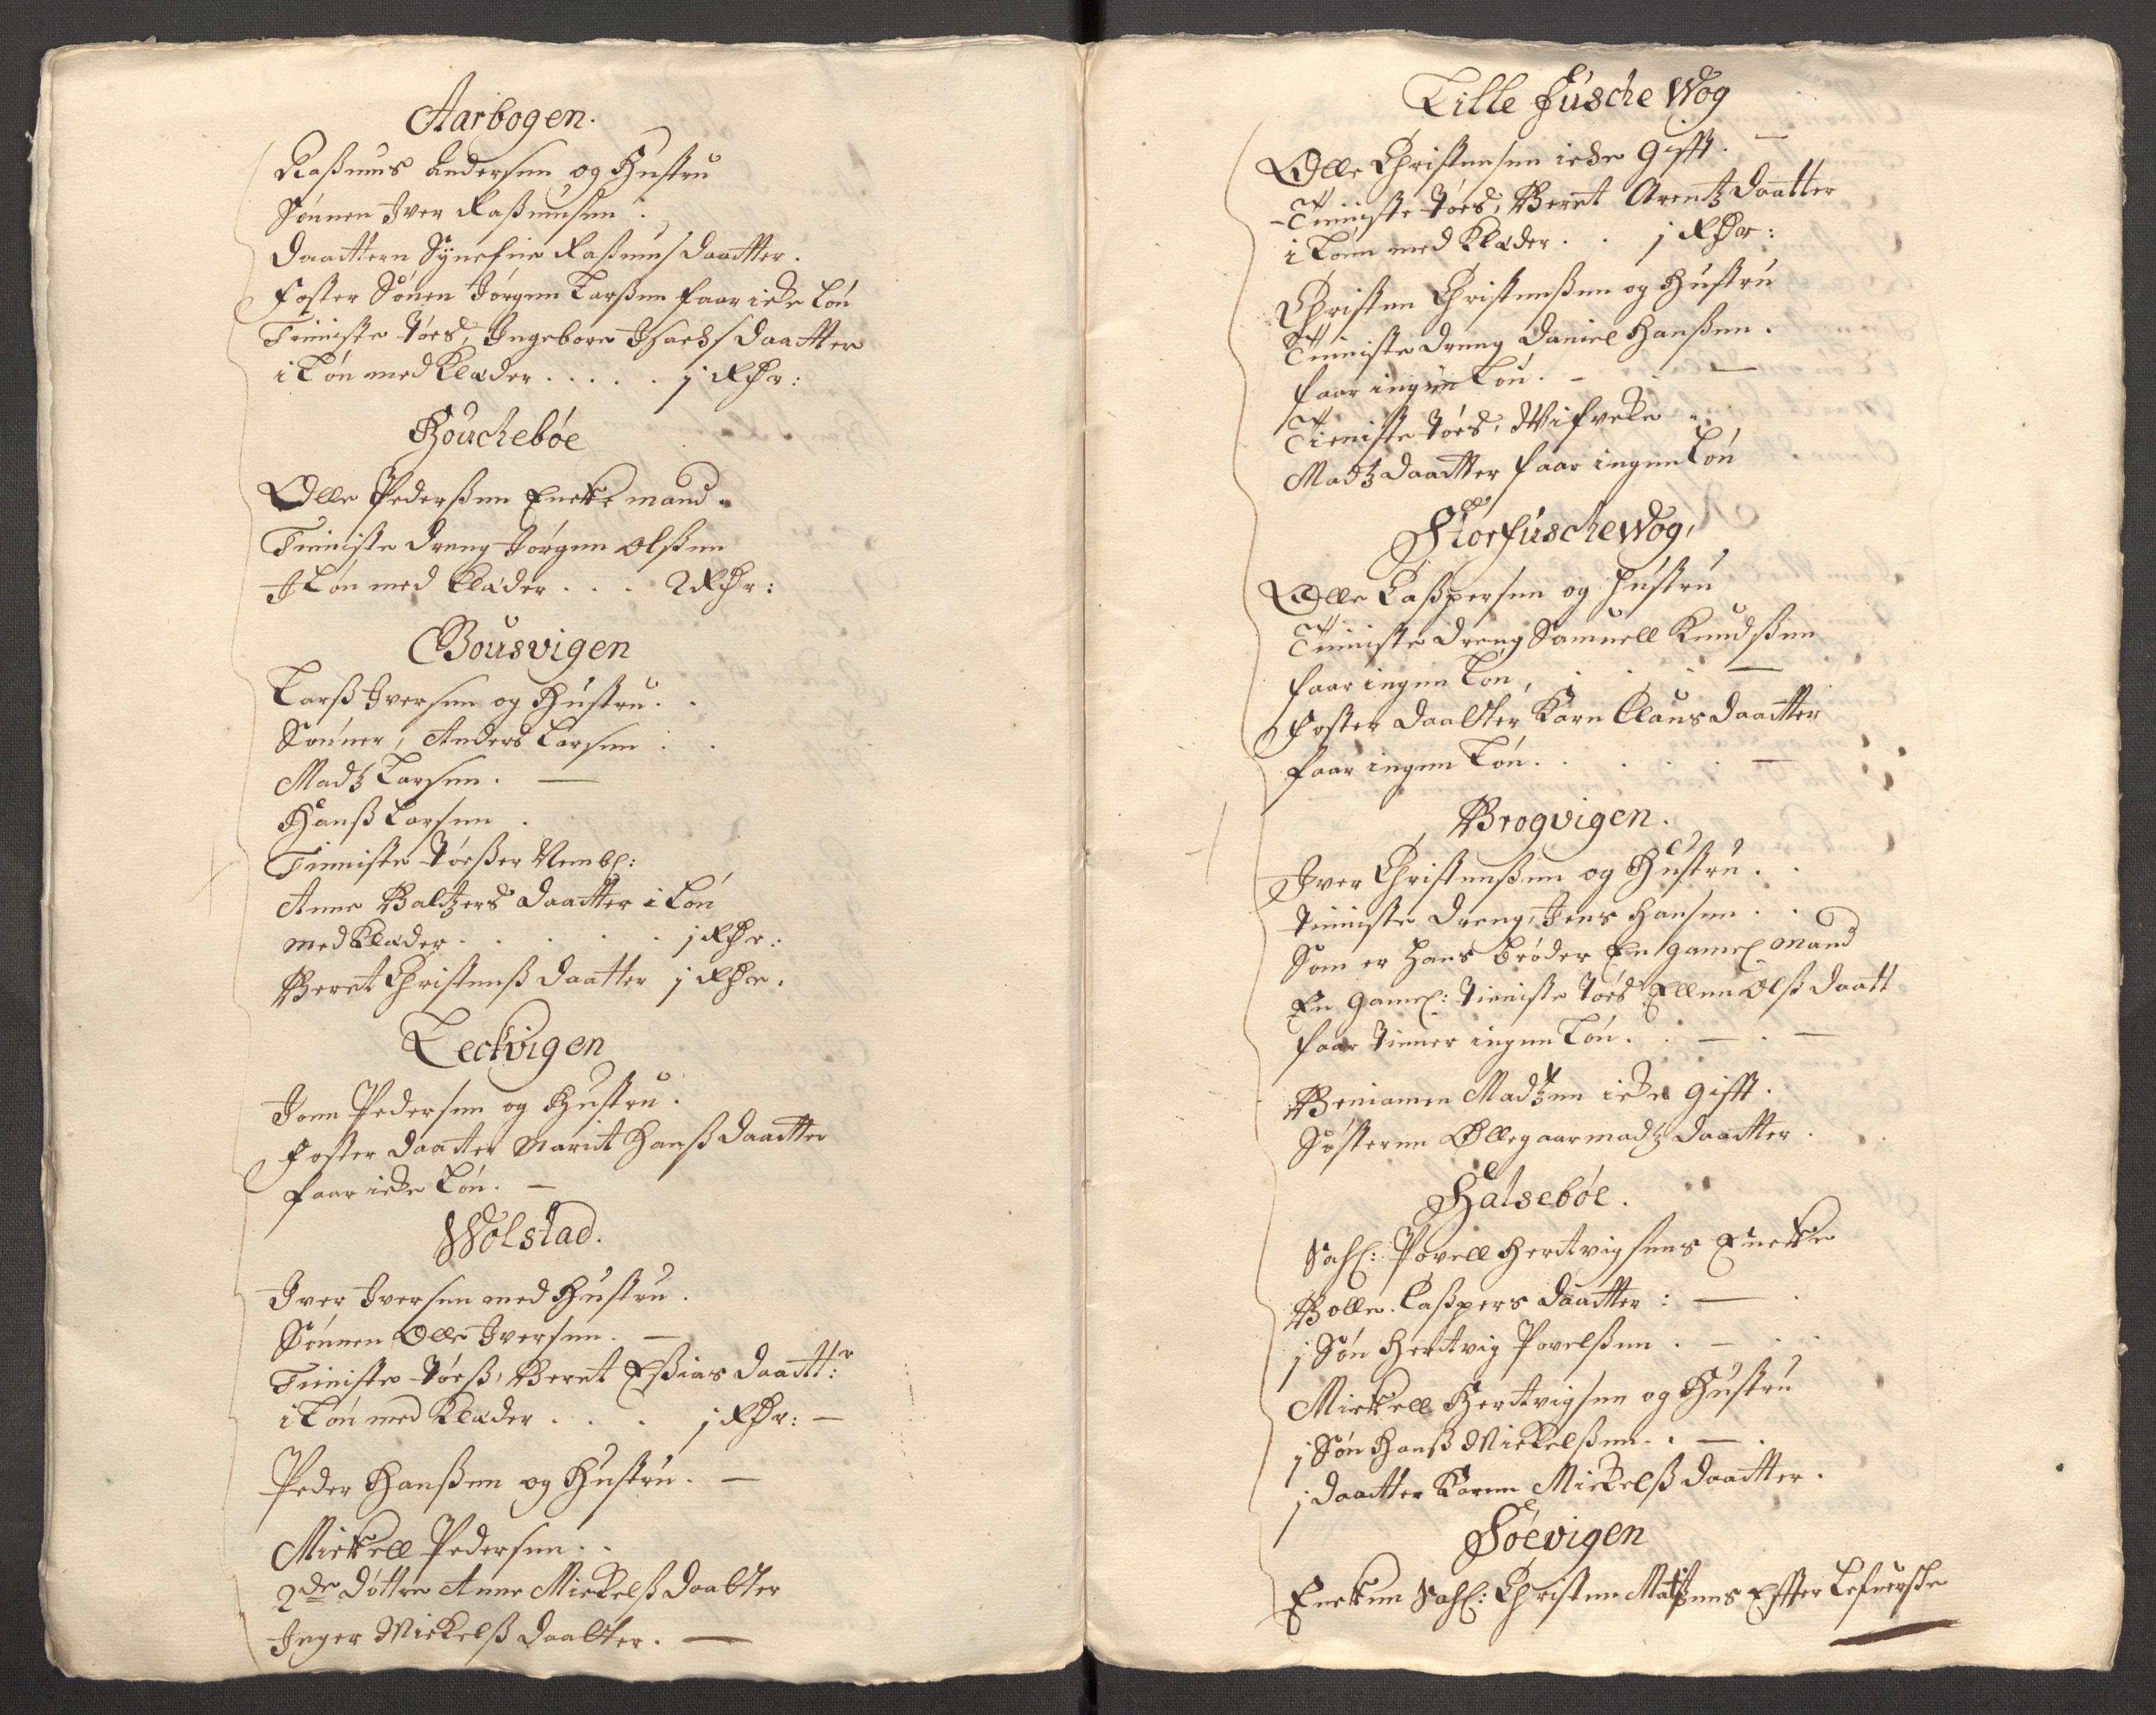 Aarbogen.
Raßmus Andersen og Hustru
Sønnen Iver Raßmusen.
Daattern Synefue Raßmus daatter.
Foster Sønen Jørgen Larßen faar icke Løn
Tieniste Tøes, Ingebore Isachs daatter
i Løn med Klæder . . . . . j Rdr:
Houchebøe
Olle Pederßen Encke mand.
Tieniste dreng Jørgen Olßen
I Løn med Klæder . . . 2 Rdr:
Bousvigen
Larß Iversen og Hustru.
Sønner, Anders Larsen
Madtz Larsen. —
Hanß Larsen.
Tieniste Tøeßer Nembl:
Anne Baltzers daatter i Løn
med Klæder . . . . . j Rdr:
Beret Christenß daatter j Rdr.
Leckvigen
Jonn Pedersen og Hustru.
Foster daatter Marit Hanß daatter
faar icke Løn. —
Wolstad.
Iver Iversen med Hustru.
Sønnen Olle Iversen. —
Tieniste Tøeß, Beret Eßias daatt:r
i Løn med Klæder . . . j Rdr: —
Peder Hanßen og Hustru. —
Mickell Pedersen. .
2de døttre Anne Mickelß daatter
Inger Mickelß daatter. —
Lille fusche Wog
Olle Christensen icke Gifft. —
Tieniste Tøes, Beret Arentz daatter
i Lønn med Klæder . . j Rdr:
Christen Christenßen og Hustru
Tieniste dreng Daniel Hanßen.
faar ingen Løn. — —
Tieniste Tøes, Wifveke
Madtz daatter faar ingen Løn
Storfusche Wog,
Olle Caßpersen og Hustru
Tieniste dreng Samuell Knudßen
faar ingen Løn, . . . —
Foster daatter Karn Claus daatter
faar ingen Løn. . . . . —
Brogvigen.
Iver Christenßen og Hustru. .
Tieniste dreng, Jens Hansen. .
Som er Hans brøder En gamel Mand
En Gamel: Tieniste Tøes Ellen Olß daatt
faar Tienner ingen Løn. . — . —
Beniamen Madtzen icke gifft.
Søsteren Øllegaar Madtz daatter.
Halsebøe.
Sahl: Povell Hertvigsens Encke
Bolle Caßpers daatter: —
j Søn Hertvig Povelßen. —
Mickell Hertvigsen og Hustru
j Søn Hanß Mickelßen. . —
j daatter Karen Mickelß daatter.
Søevigen
Encken Sahl: Christen Matzens Effter Lefversche